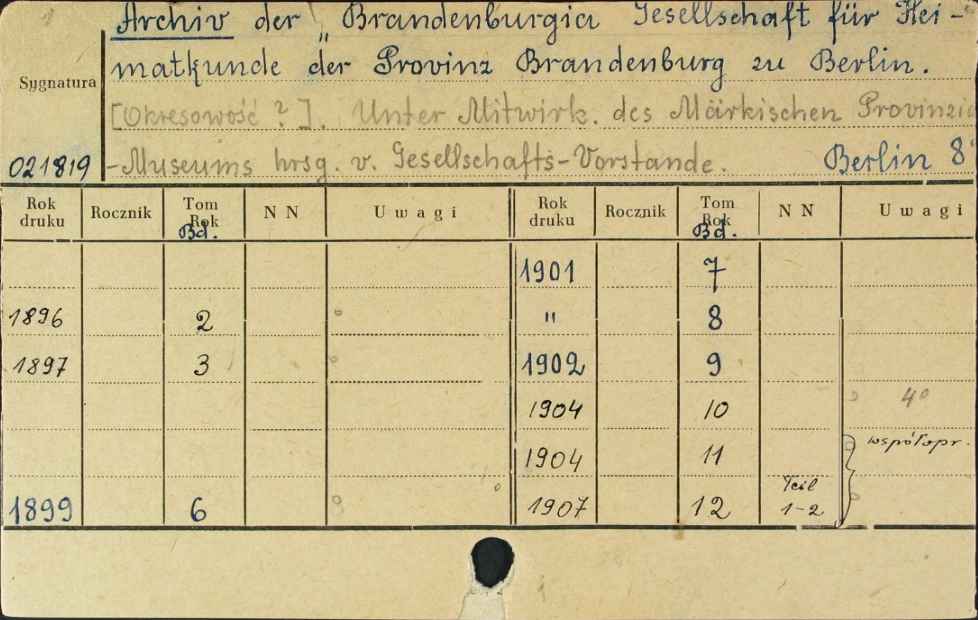 Archiv der „ Brandenburgia Gesellschaft für Hei-
matkunde der Provinz Brandenburg zu Berlin.
Sygnatura
[Okresowość ? ]. Unter Mitwirk. des Märkischen Provinzial
021819 -Museums hrsg. v. Gesellschafts-Vorstande. Berlin 8°
Rok druku Rocznik Tom Rok Bd. N N Uwagi Rok druku Rocznik Tom Rok Bd. N N Uwagi
1901 7
1896 2 " 8
1897 3 1902 9
1904 10 4°
1904 11 współopr.
1899 6 1907 12 Teil 1-2